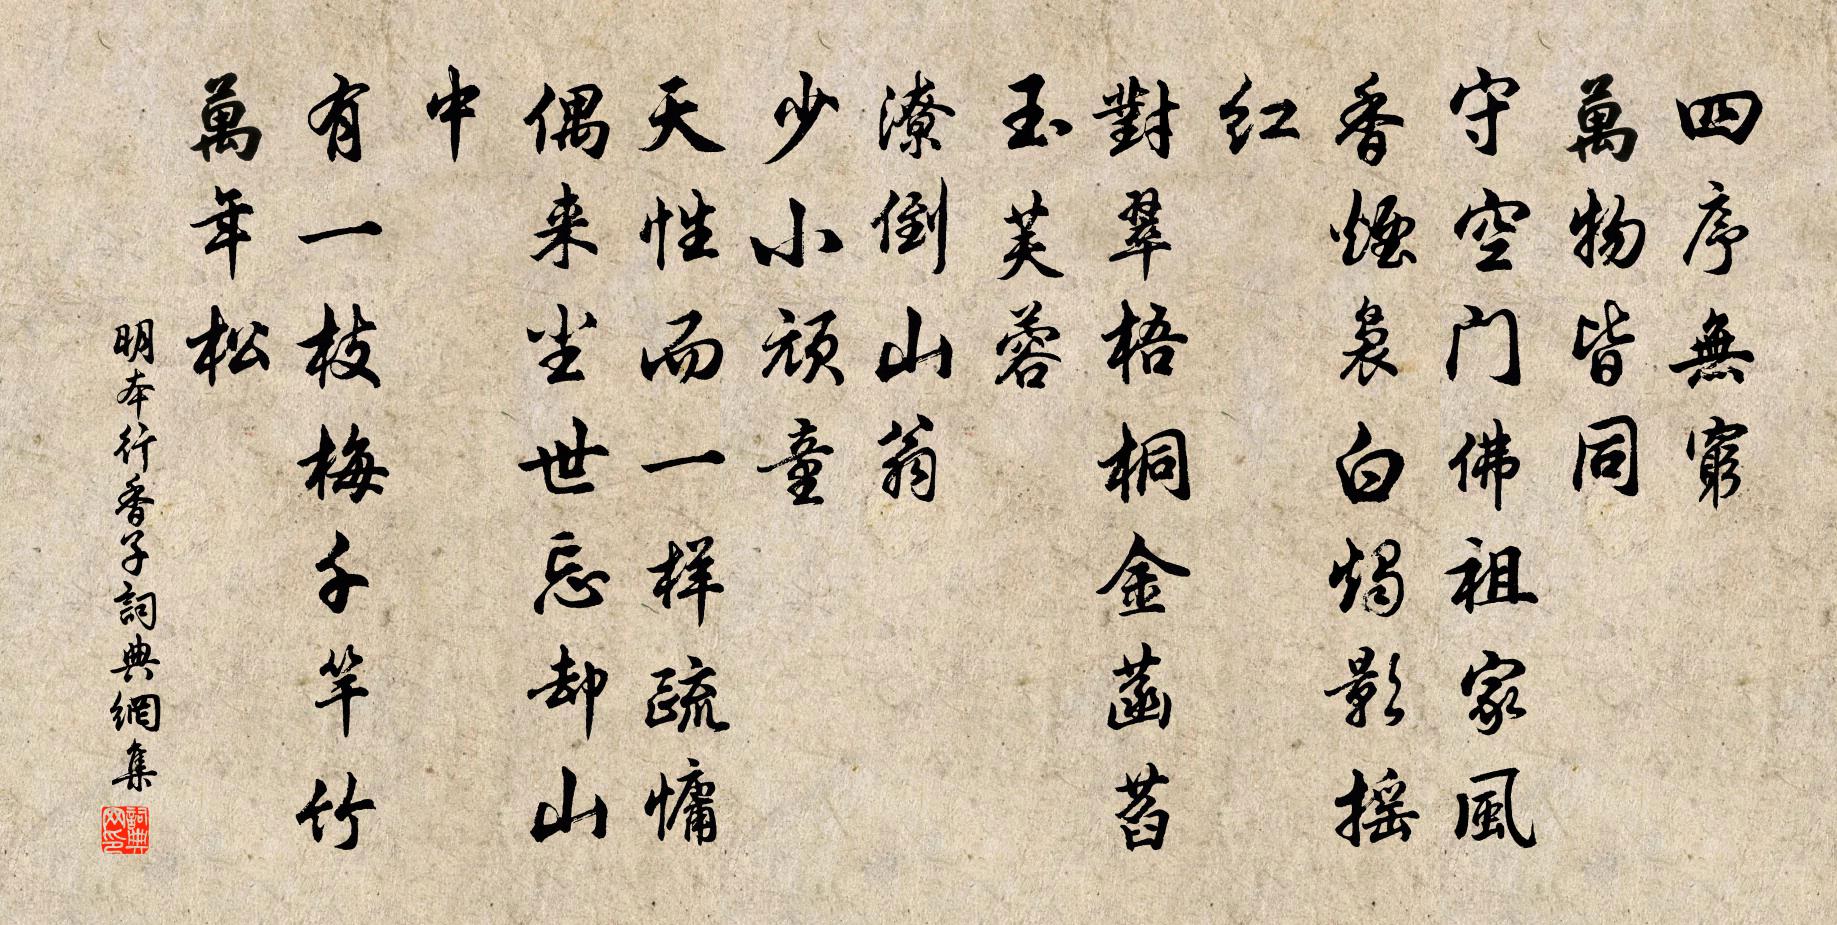 四序無窮
萬物皆同
守空门佛祖家風
香煙裊白燭影摇
红
對翠梧桐金菡萏
玉芙蓉
潦倒山翁
少小顽童
天性而一样疏慵
偶来尘世忘却山
中
有一枝梅千竿竹
萬年松
明本行香子詞典網集
詞典网印